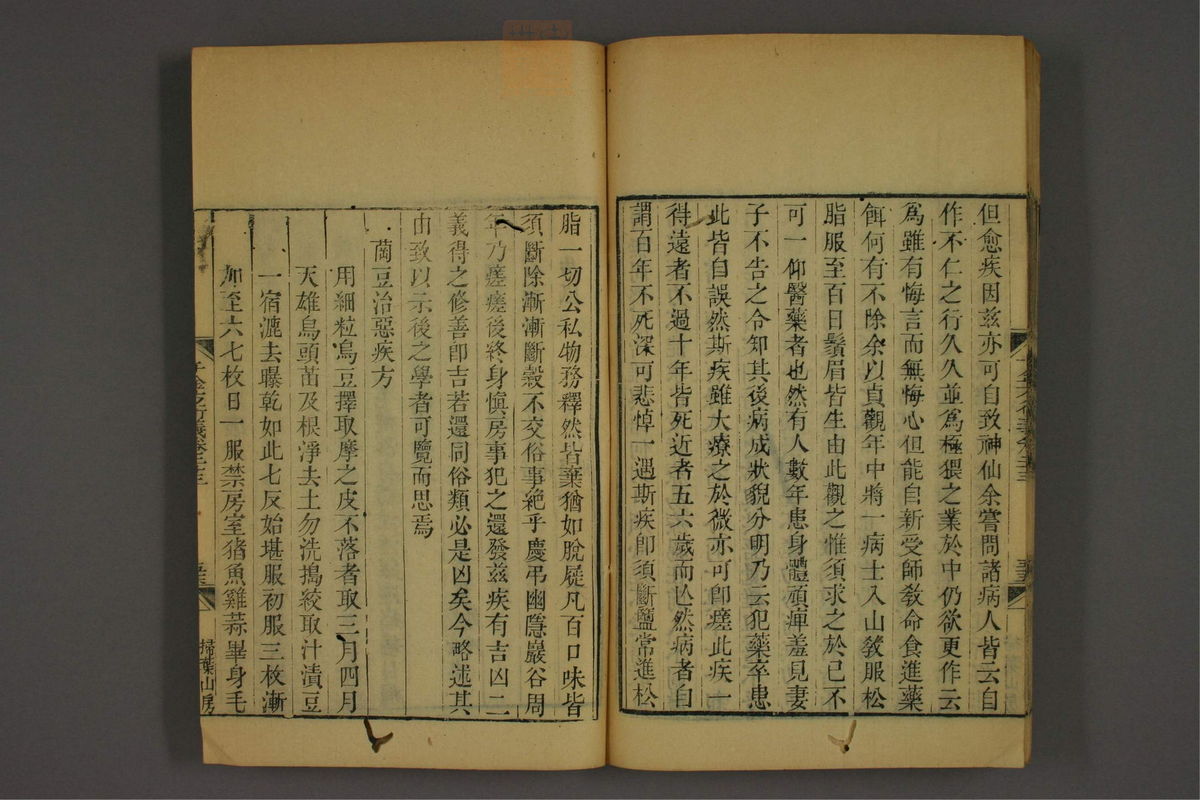 但愈疾因茲亦可自致神仙余嘗問諸病人皆云自
作不仁之行久久並爲極猥之業於中仍欲更作云
爲雖有悔言而無悔心但能自新受師敎命食進藥
餌何有不除余以貞觀年中將一病士入山敎服松
脂服至百日鬚眉皆生由此觀之惟須求之於己不
可一仰醫藥者也然有人數年患身體頑痺羞見妻
子不告之令知其後病成狀貌分明乃云犯藥卒患
此皆自誤然斯疾雖大療之於微亦可卽瘥此疾一
得遠者不過十年皆死近者五六歲而亾然病者自
謂百年不死深可悲悼一遇斯疾卽須斷鹽常進松
脂一切公私物務釋然皆棄猶如脫屣凡百口味皆
須斷除漸漸斷穀不交俗事絶乎慶弔幽隱巖谷周
年乃瘥瘥後終身愼房事犯之還發茲疾有吉凶二
義得之修善卽吉若還同俗類必是凶矣今略述其
由致以示後之學者可覽而思焉
䓞豆治惡疾方
用細粒烏豆擇取摩之皮不落者取三月四月
天雄烏頭苗及根淨去土勿洗搗絞取汁漬豆
一宿漉去曝乾如此七反始堪服初服三枚漸
加至六七枚日一服禁房室猪魚雞蒜畢身毛
掃葉山房